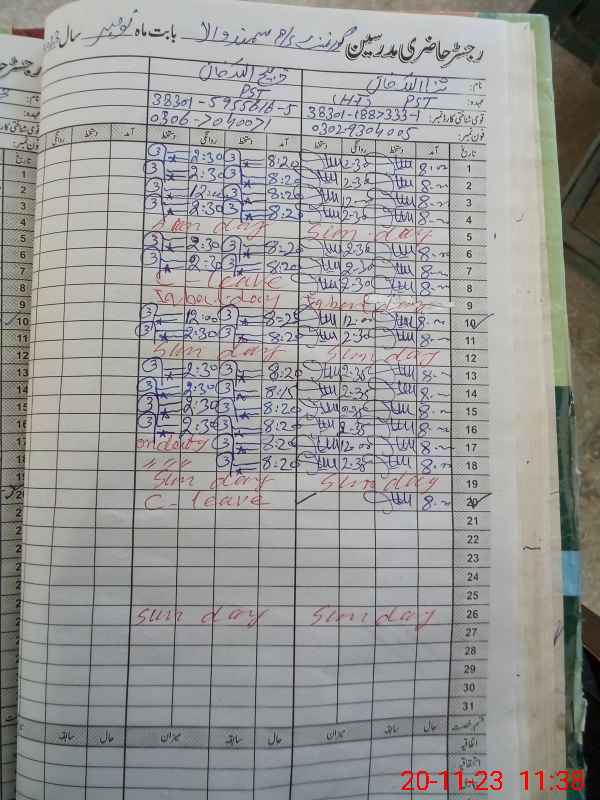 رجسٹر حاضری مدرسین گورنمنٹ پ/س سمندر والا بابت ماہ نومبر سال
نام: ثناء اللہ خان ذبیح اللہ خان
عہدہ: PST (HT) PST
قومی شناختی کارڈ نمبر: 38301-1887333-1
فون نمبر: 0302-9304005 0306-7040071
تاریخ آمد دستخط روانگی دستخط آمد دستخط روانگی دستخط آمد دستخط روانگی
1 8:00 2:30 8:20 2:30
2 8:00 2:30 8:20 2:30
3 8:00 12:00 8:20 12:00
4 8:00 2:30 8:20 2:30
5 Sun day Sun day
6 8:00 2:30 8:20 2:30
7 8:00 2:30 8:20 2:30
8 8:00 2:30 C leave
9 Iqbal day Iqbal day
10 8:00 12:00 8:25 12:00
11 8:00 2:30 8:20 2:30
12 Sun day Sun day
13 8:00 2:35 8:20 2:30
14 8:00 2:35 8:15 2:30
15 8:00 2:35 8:20 2:30
16 8:00 2:35 8:20 2:30
17 8:00 12:00 8:20 on duty
18 8:00 2:35 8:20 〃 〃 〃
19 Sun day Sun day
20 8:00 C- leave
21
22
23
24
25
26 Sun day Sun day
27
28
29
30
31
قسم رخصت حال سابقہ میزان حال سابقہ میزان حال سابقہ
اتفاقیہ
استحقاقیہ
20-11-23 11:38